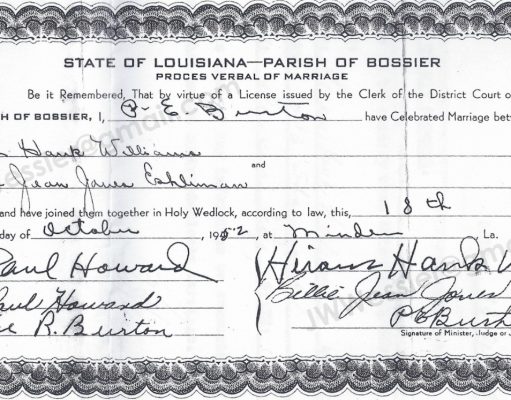 STATE OF LOUISIANA—PARISH OF BOSSIER
PROCES VERBAL OF MARRIAGE
Be it Remembered, That by virtue of a License issued by the Clerk of the District Court of
H OF BOSSIER, I, P. E. Burton have Celebrated Marriage bet
Hank Williams
and
Jean Jones Eshliman
and have joined them together in Holy Wedlock, according to law, this, 18th
day of October, 1952, at Minden La.
Paul Howard Hiram Hank W
Paul Howard Billie Jean Jones
R. Burton P E Burt
Signature of Minister, Judge or J